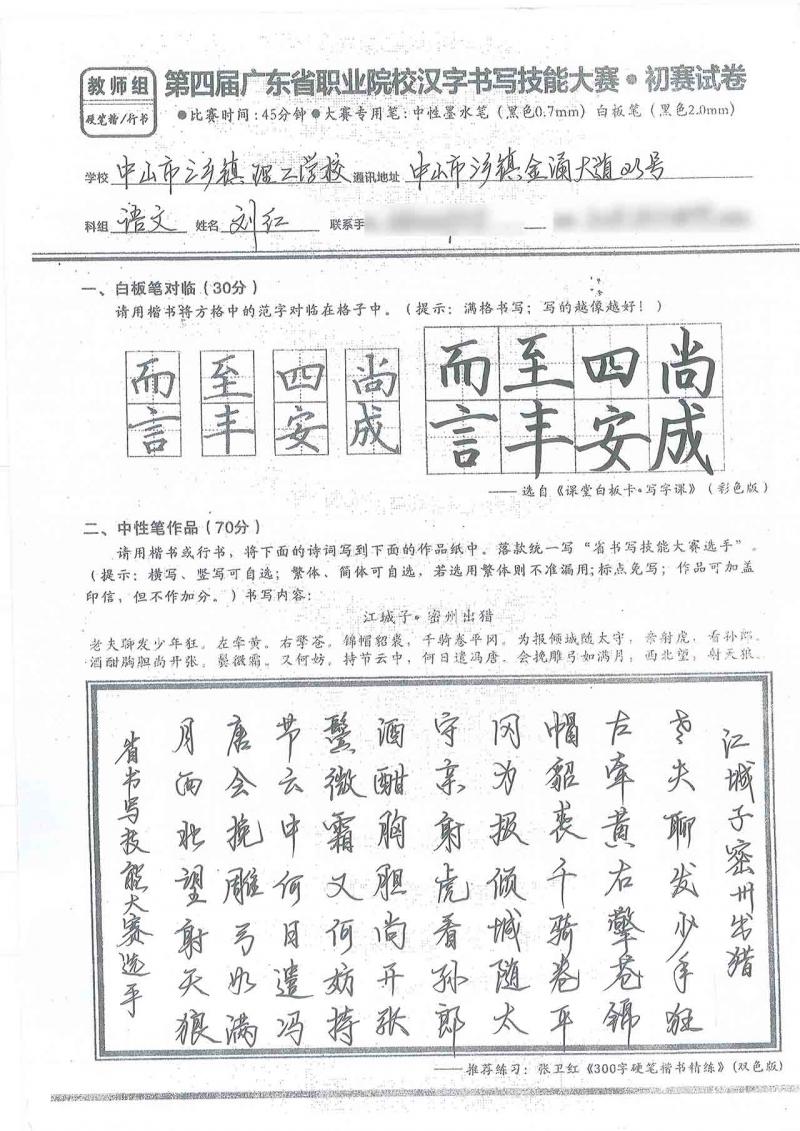 教师组
硬笔楷/行书
第四届广东省职业院校汉字书写技能大赛·初赛试卷
●比赛时间:45分钟●大赛专用笔:中性墨水笔(黑色0.7mm)白板笔(黑色2.0mm)
学校 中山市三乡镇理工学校 通讯地址 中山市三乡镇金涌大道25号
科组 语文 姓名 刘红 联系手
一、白板笔对临(30分)
请用楷书将方格中的范字对临在格子中。(提示:满格书写;写的越像越好!)
而 至 四 尚 而 至 四 尚
言 丰 安 成 言 丰 安 成
——选自《课堂白板卡·写字课》(彩色版)
二、中性笔作品(70分)
请用楷书或行书,将下面的诗词写到下面的作品纸中。落款统一写“省书写技能大赛选手”。
(提示:横写、竖写可自选;繁体、简体可自选,若选用繁体则不准漏用;标点免写;作品可加盖
印信,但不作加分。)书写内容:
江城子·密州出猎
老夫聊发少年狂。左牵黄。右擎苍。锦帽貂裘,千骑卷平冈。为报倾城随太守,亲射虎,看孙郎。
酒酣胸胆尚开张。鬓微霜。又何妨。持节云中,何日遣冯唐。会挽雕弓如满月,西北望,射天狼。
江城子密州出猎
老夫聊发少年狂
左牵黄右擎苍锦
帽貂裘千骑卷平
冈为报倾城随太
守亲射虎看孙郎
酒酣胸胆尚开张
鬓微霜又何妨持
节云中何日遣冯
唐会挽雕弓如满
月西北望射天狼
省书写技能大赛选手
——推荐练习:张卫红《300字硬笔楷书精练》(双色版)